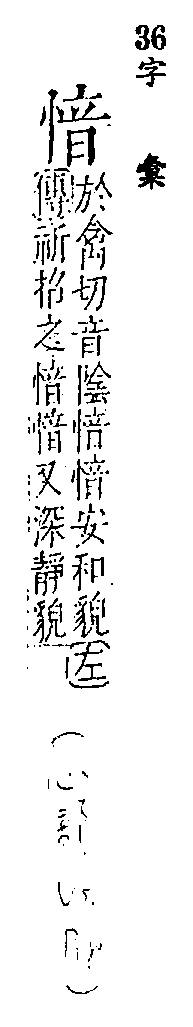 36字彙
愔
於禽切音陰愔愔安和貌左
傳祈招之愔愔又深靜貌
(心部